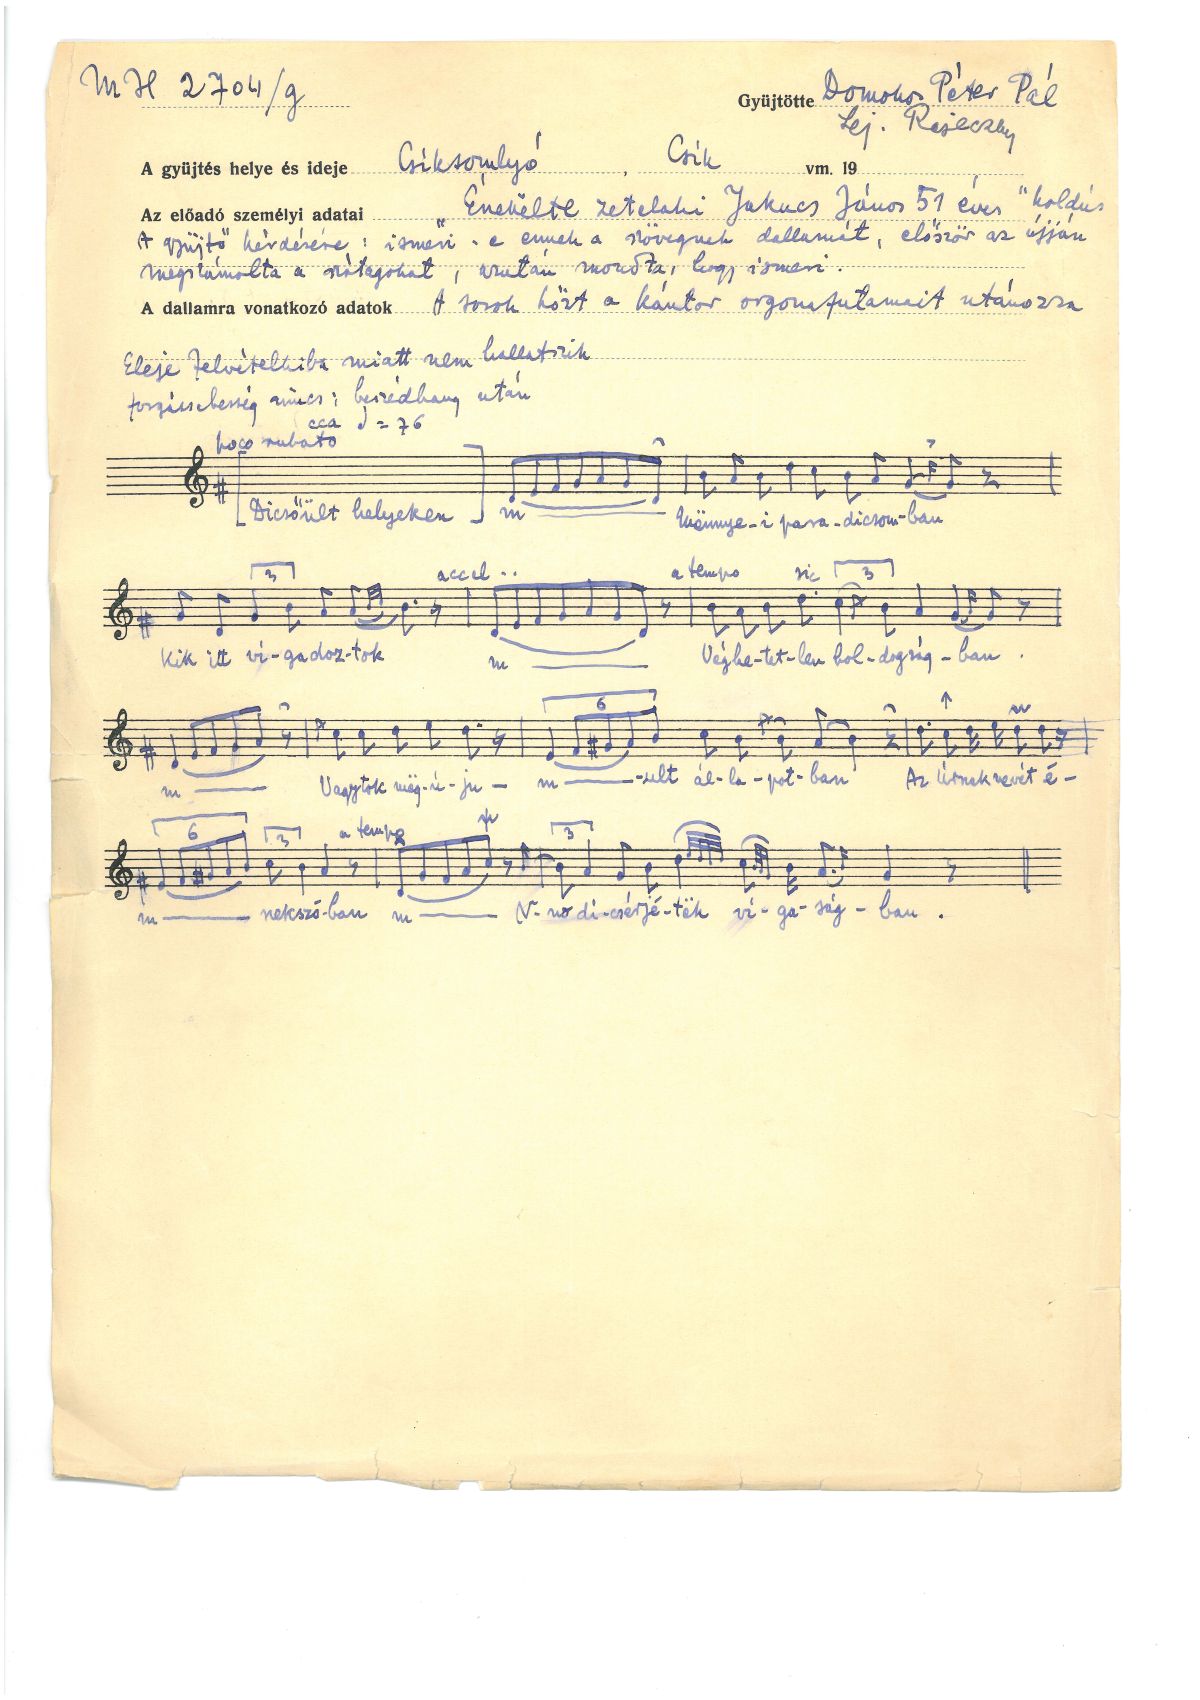 MH 2704/g
Gyüjtötte Domokos Péter Pál
Lej. Rajeczky
A gyüjtés helye és ideje Csiksomlyó, Csik vm. 19
Az előadó személyi adatai Énekëlte zetelaki Jakucs János 51 éves "koldus"
A gyüjtő kérdésére: ismeri-e ennek a szövegnek dallamát, először az újján
megszámolta a szótagokat, azután mondta, hogy ismeri.
A dallamra vonatkozó adatok A sorok közt a kántor orgonafutamait utánozza
Eleje felvételhiba miatt nem hallatszik
forgássebesség nincs; beszédhang után
cca ♩ = 76
poco rubato
[Dicsőült helyeken] m Mënnye-i para-dicsom-ban
3 accel.. a tempo sic 3
Kik itt vi-gadoz-tok m Véghe-tet-len bol-dogság-ban.
6
m Vagytok mëg-ú-ju- m -sult ál-la-pot-ban Az Úrnak nevét é-
6 3 a tempo 3
m nekszó-ban m N-no di-csérjé-tëk vi-ga-ság-ban.